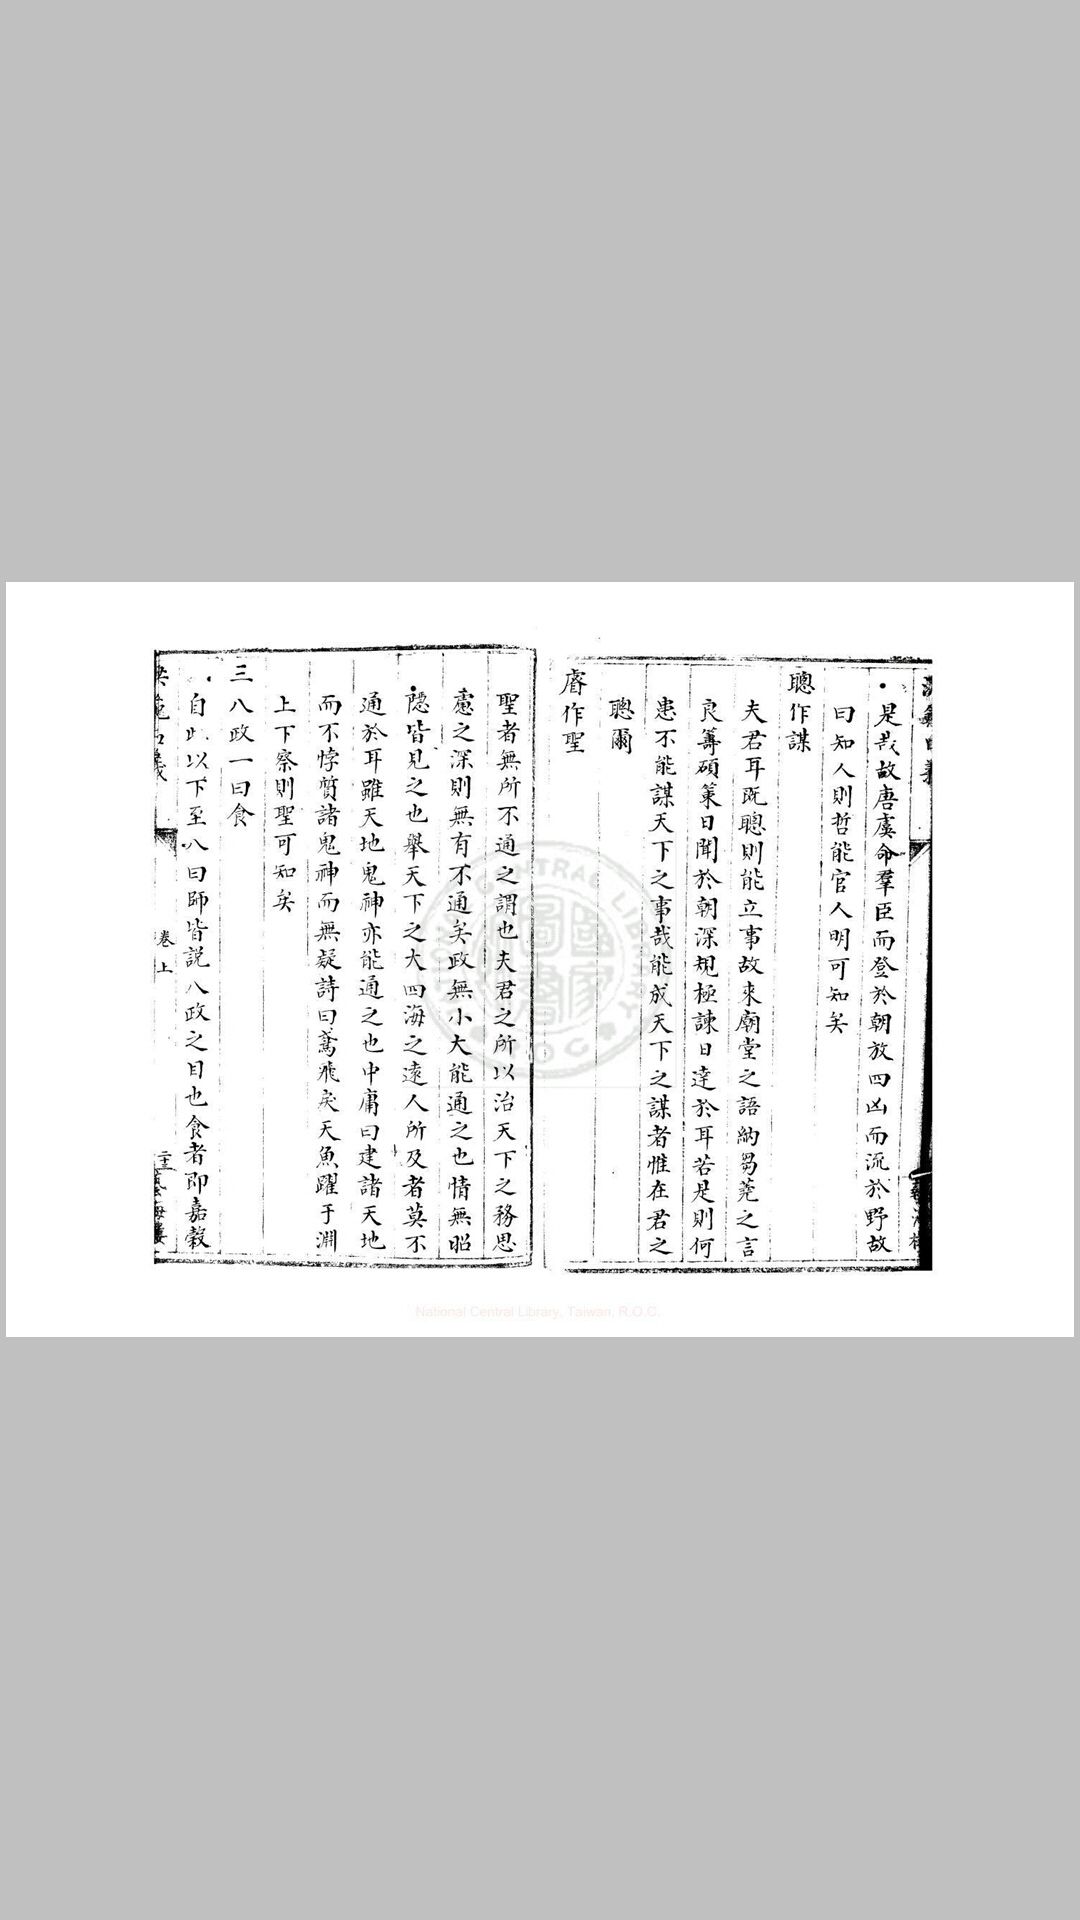 是哉故唐虞命羣臣而登於朝放四凶而流於野故
曰知人則哲能官人明可知矣
聰作謀
夫君耳既聰則能立事故來廟堂之語納芻蕘之言
良籌碩策日聞於朝深規極諫日達於耳若是則何
患不能謀天下之事哉能成天下之謀者惟在君之
聰爾
睿作聖
聖者無所不通之謂也夫君之所以治天下之務思
慮之深則無有不通矣政無小大能通之也情無昭
隱皆見之也舉天下之大四海之遠人所及者莫不
通於耳雖天地鬼神亦能通之也中庸曰建諸天地
而不悖質諸鬼神而無疑詩曰鳶飛戾天魚躍于淵
上下察則聖可知矣
三八政一曰食
自此以下至八曰師皆説八政之目也食者即嘉穀
卷上
National Central Library, Taiwan, R.O.C.